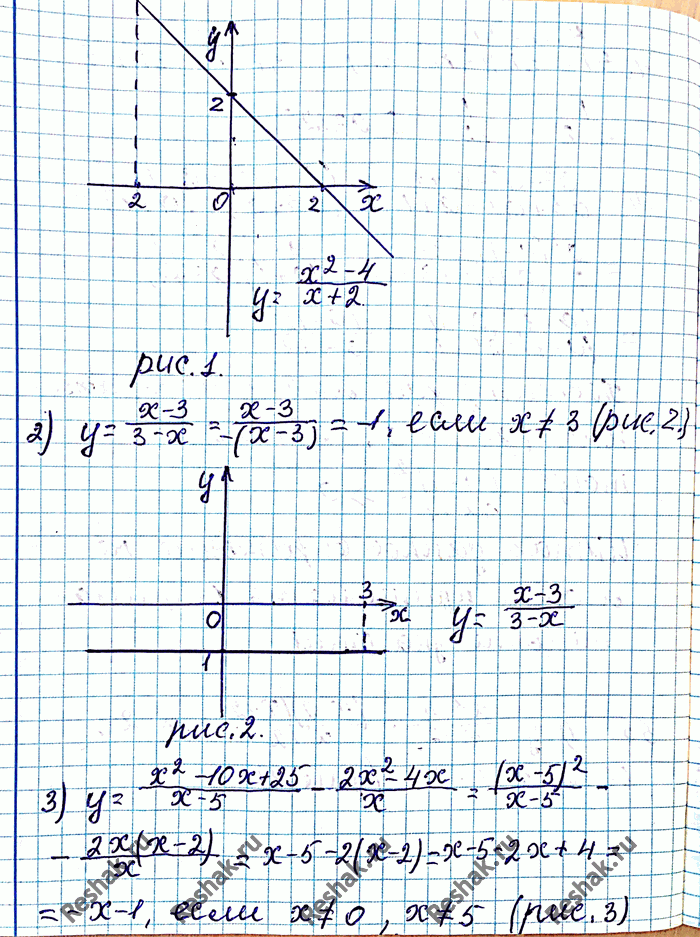 y
2
2 0 2 x
y = (x² - 4)/(x + 2)
рис. 1.
2) y = (x - 3)/(3 - x) = (x - 3)/(-(x - 3)) = -1, если x ≠ 3 (рис. 2)
y
3
0 x
y = (x - 3)/(3 - x)
1
рис. 2.
3) y = (x² - 10x + 25)/(x - 5) - (2x² - 4x)/x = (x - 5)²/(x - 5) -
- 2x(x - 2)/x = x - 5 - 2(x - 2) = x - 5 - 2x + 4 =
= -x - 1, если x ≠ 0, x ≠ 5 (рис. 3)
Reshak.ru Reshak.ru Reshak.ru Reshak.ru